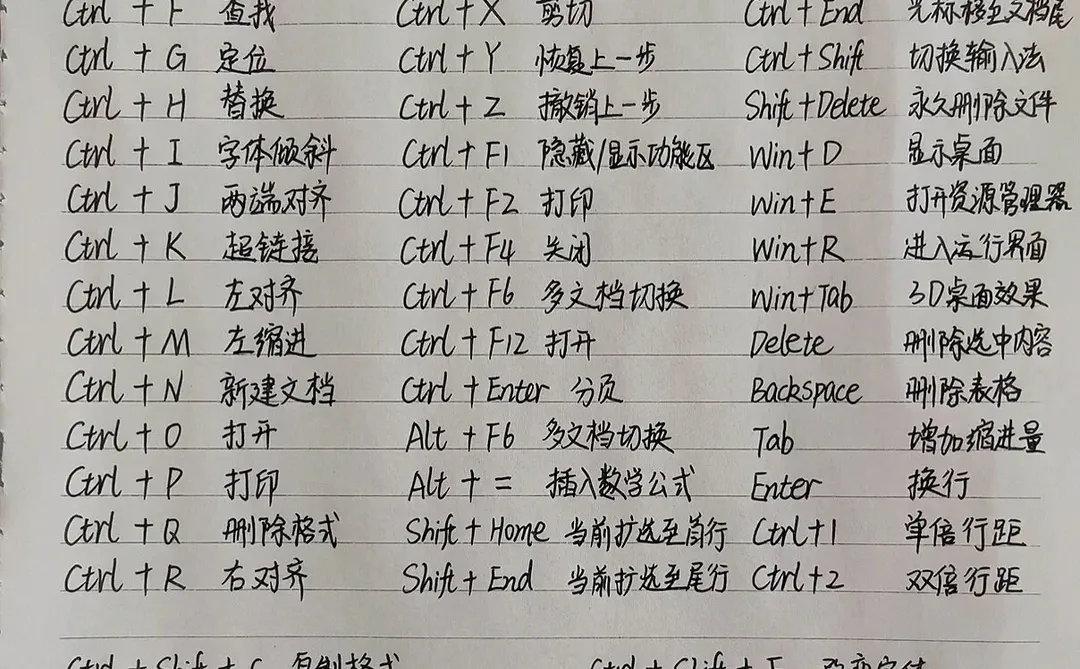 Ctrl + F 查找 Ctrl + X 剪切 Ctrl + End 光标移至文档尾
Ctrl + G 定位 Ctrl + Y 恢复上一步 Ctrl + Shift 切换输入法
Ctrl + H 替换 Ctrl + Z 撤销上一步 Shift + Delete 永久删除文件
Ctrl + I 字体倾斜 Ctrl + F1 隐藏/显示功能区 Win + D 显示桌面
Ctrl + J 两端对齐 Ctrl + F2 打印 Win + E 打开资源管理器
Ctrl + K 超链接 Ctrl + F4 关闭 Win + R 进入运行界面
Ctrl + L 左对齐 Ctrl + F6 多文档切换 Win + Tab 3D桌面效果
Ctrl + M 左缩进 Ctrl + F12 打开 Delete 删除选中内容
Ctrl + N 新建文档 Ctrl + Enter 分页 Backspace 删除表格
Ctrl + O 打开 Alt + F6 多文档切换 Tab 增加缩进量
Ctrl + P 打印 Alt + = 插入数学公式 Enter 换行
Ctrl + Q 删除格式 Shift + Home 当前扩选至首行 Ctrl + 1 单倍行距
Ctrl + R 右对齐 Shift + End 当前扩选至尾行 Ctrl + 2 双倍行距
Ctrl + Shift + C 复制格式 Ctrl + Shift +